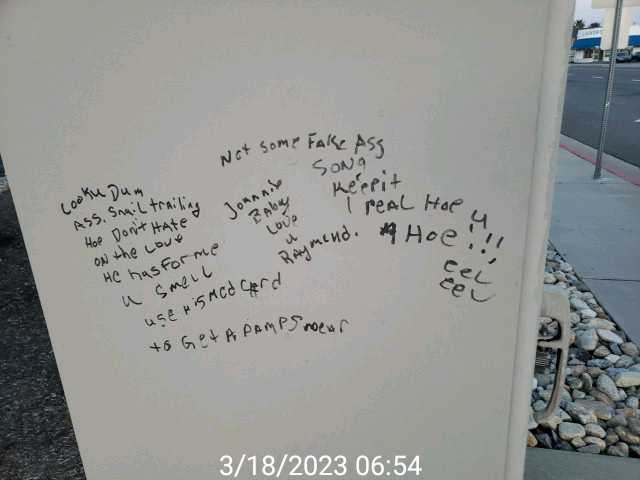 Not some Fake Ass
Song
Keepit
1 real Hoe u
Hoe !!!
eeL
eeL
Looku Dum
Ass. Snail trailing
Hoe Don't Hate
on the Love
He has for me
u smell
use HIS MCd CArd
to Get A PAMPS
Joannie
Baby
Love
u
RAymond.
3/18/2023 06:54